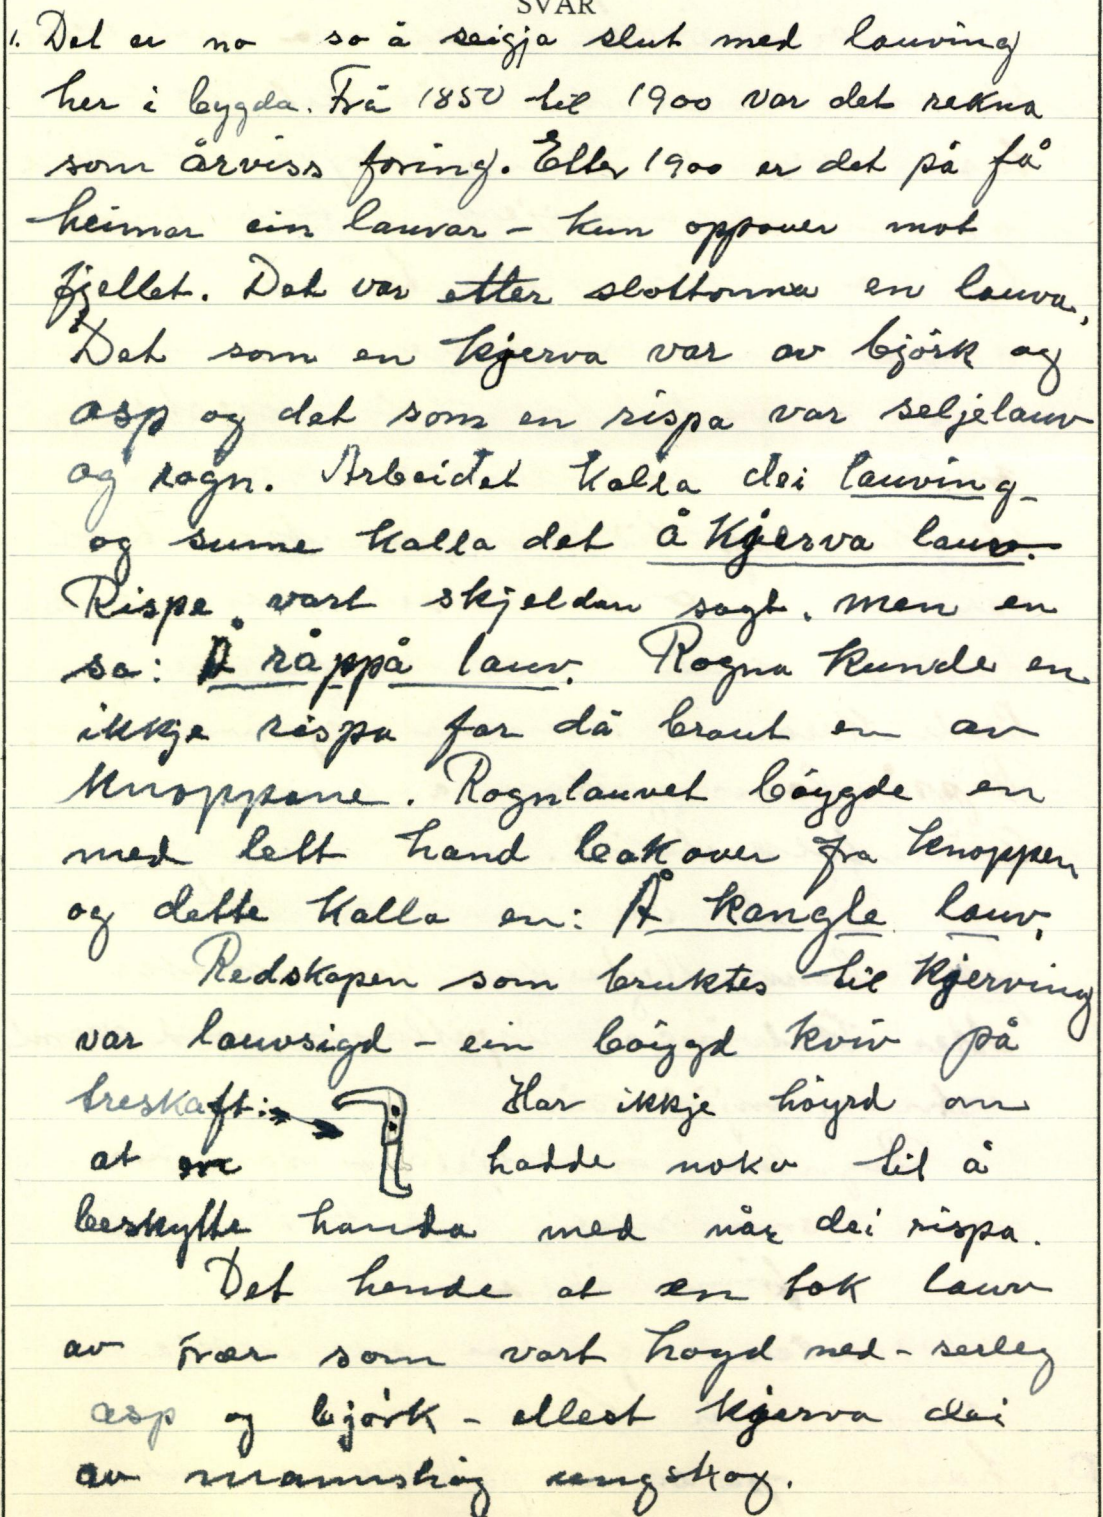 SVAR
1. Det er no so å seigja slut med lauving
her i bygda. Frå 1850 til 1900 var det rekna
som årviss foring. Etter 1900 er det på få
heimar ein lauvar - kun oppover mot
fjellet. Det var etter slottonna en lauva.
Det som en kjerva var av björk og
asp og det som en rispa var seljelauv
og rogn. Arbeidet kalla dei lauving -
og sume kalla det å kjerva lauv.
Rispe vart skjeldan sagt, men en
sa: Å råppå lauv. Rogna kunde en
ikkje rispa for då braut en av
knoppane. Rognlauvet böygde en
med lett hand bakover fra knoppen
og dette kalla en: Å kangle lauv.
Redskapen som bruktes til kjerving
var lauvsigd - ein böygd kniv på
treskaft: Har ikkje höyrd om
at en hadde noko til å
beskytte handa med når dei rispa.
Det hende at en tok lauv
av trær som vart hogd ned - serleg
asp og björk - ellest kjerva dei
av mannshög ungskog.